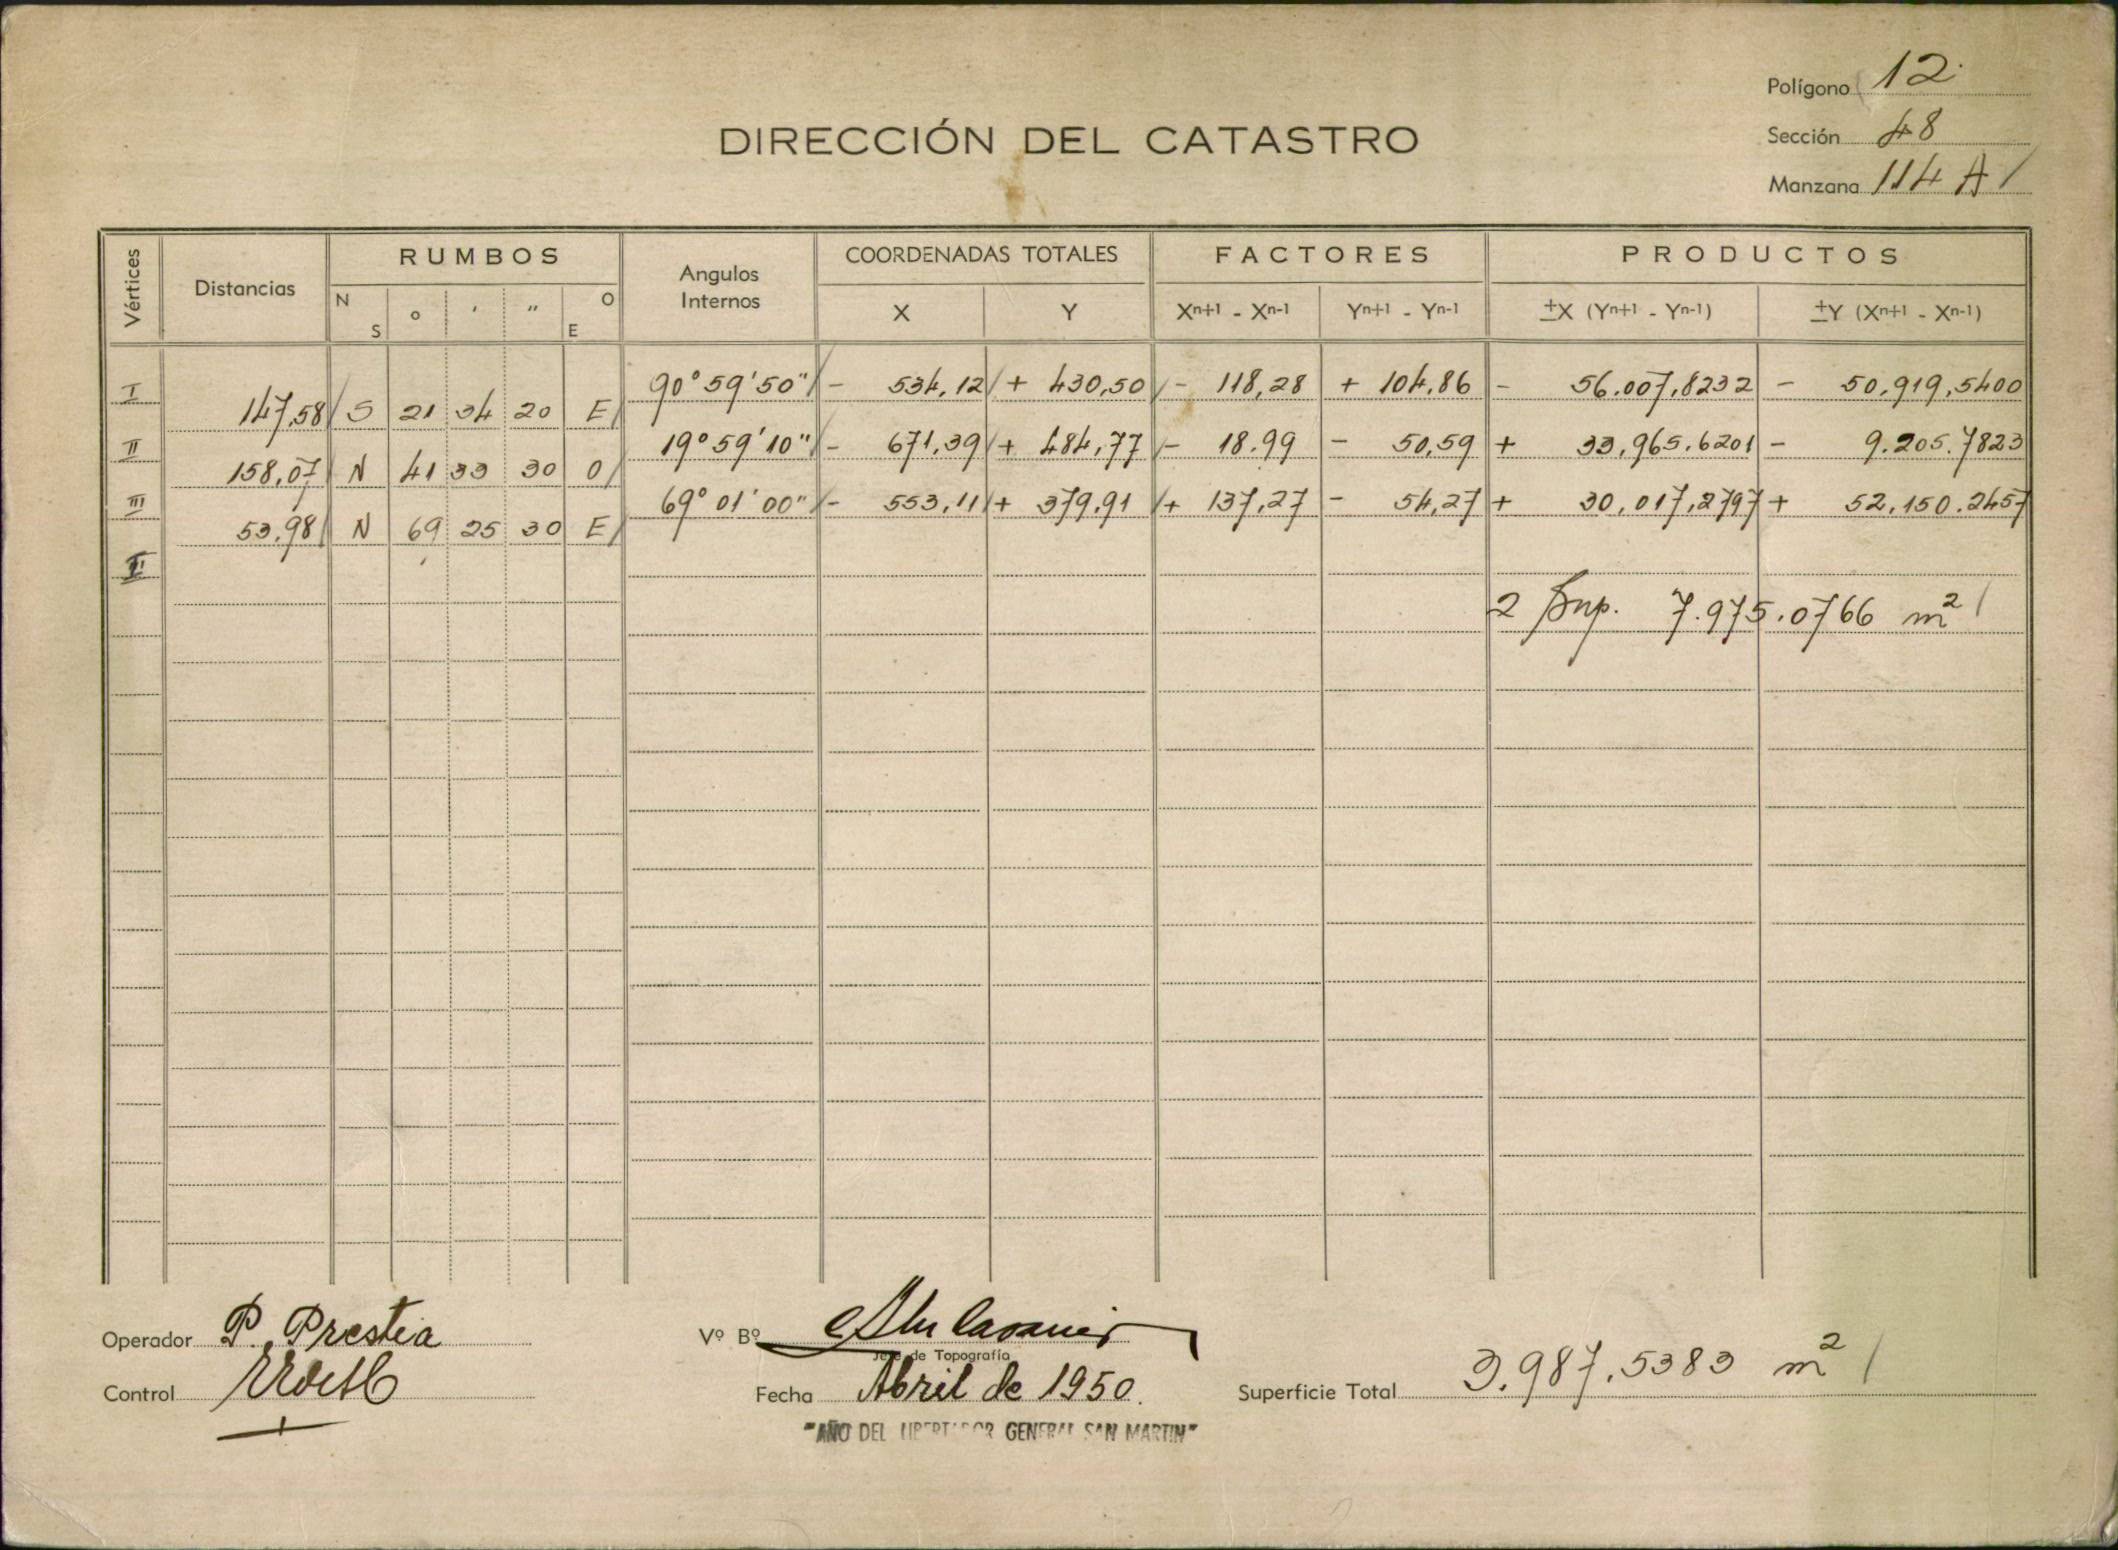 Polígono 12
Sección 48
Manzana 114 A
DIRECCIÓN DEL CATASTRO
Vértices Distancias RUMBOS Angulos Internos COORDENADAS TOTALES FACTORES PRODUCTOS
N S o ' " O E X Y Xn+1 - Xn-1 Yn+1 - Yn-1 ±X (Yn+1 - Yn-1) ±Y (Xn+1 - Xn-1)
I 90° 59' 50" - 534,12 + 430,50 - 118,28 + 104,86 - 56.007,8232 - 50.919,5400
147,58 S 21 34 20 E
II 19° 59' 10" - 671,39 + 484,77 - 18.99 - 50,59 + 33,965.6201 - 9.205.7823
158,07 N 41 33 30 O
III 69° 01' 00" - 553,11 + 379,91 + 137,27 - 54,27 + 30,017,2797 + 52,150.2457
53,98 N 69 25 30 E
I
2 Sup. 7.975.0766 m²
Operador P. Prestia
Vº Bº
Jefe de Topografía
Control
Fecha Abril de 1950.
Superficie Total 3.987,5383 m²
"AÑO DEL LIBERTADOR GENERAL SAN MARTIN"